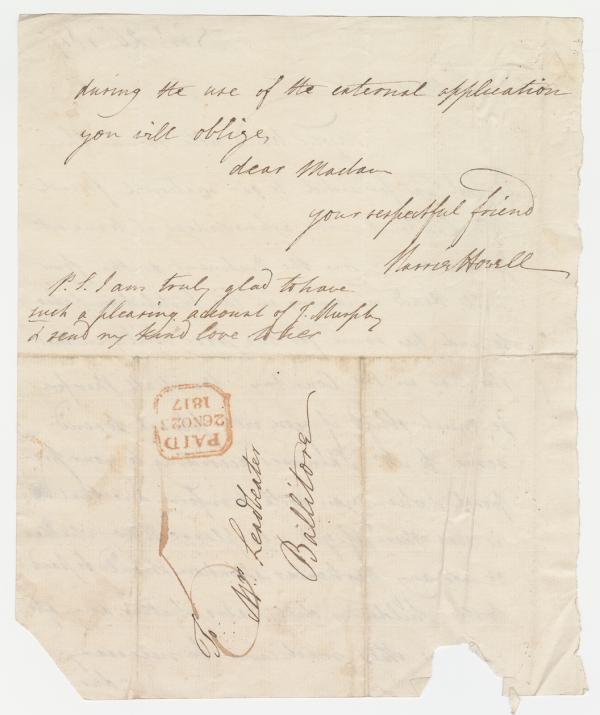 during the use of the external application
you will oblige,
dear Madam
your respectful friend
Howell
P.S. I am truly glad to have
such a pleasing account of J. Murphy
& send my kind love to her
PAID
26NO23
1817
To Mrs. Leadbeater
Ballitore